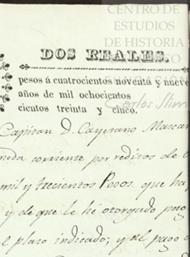 CENTRO DE
ESTUDIOS
DE HISTORIA
DOS REALES.
pesos á cuatrocientos noventa y nueve
años de mil ochocientos
cientos treinta y cinco.
Carlos Slim
Capitan D. Cayetano
corriente por reditos de
mil y trescientos Pesos, que ha
y de que le hé otorgado
el plazo indicado; y al pago